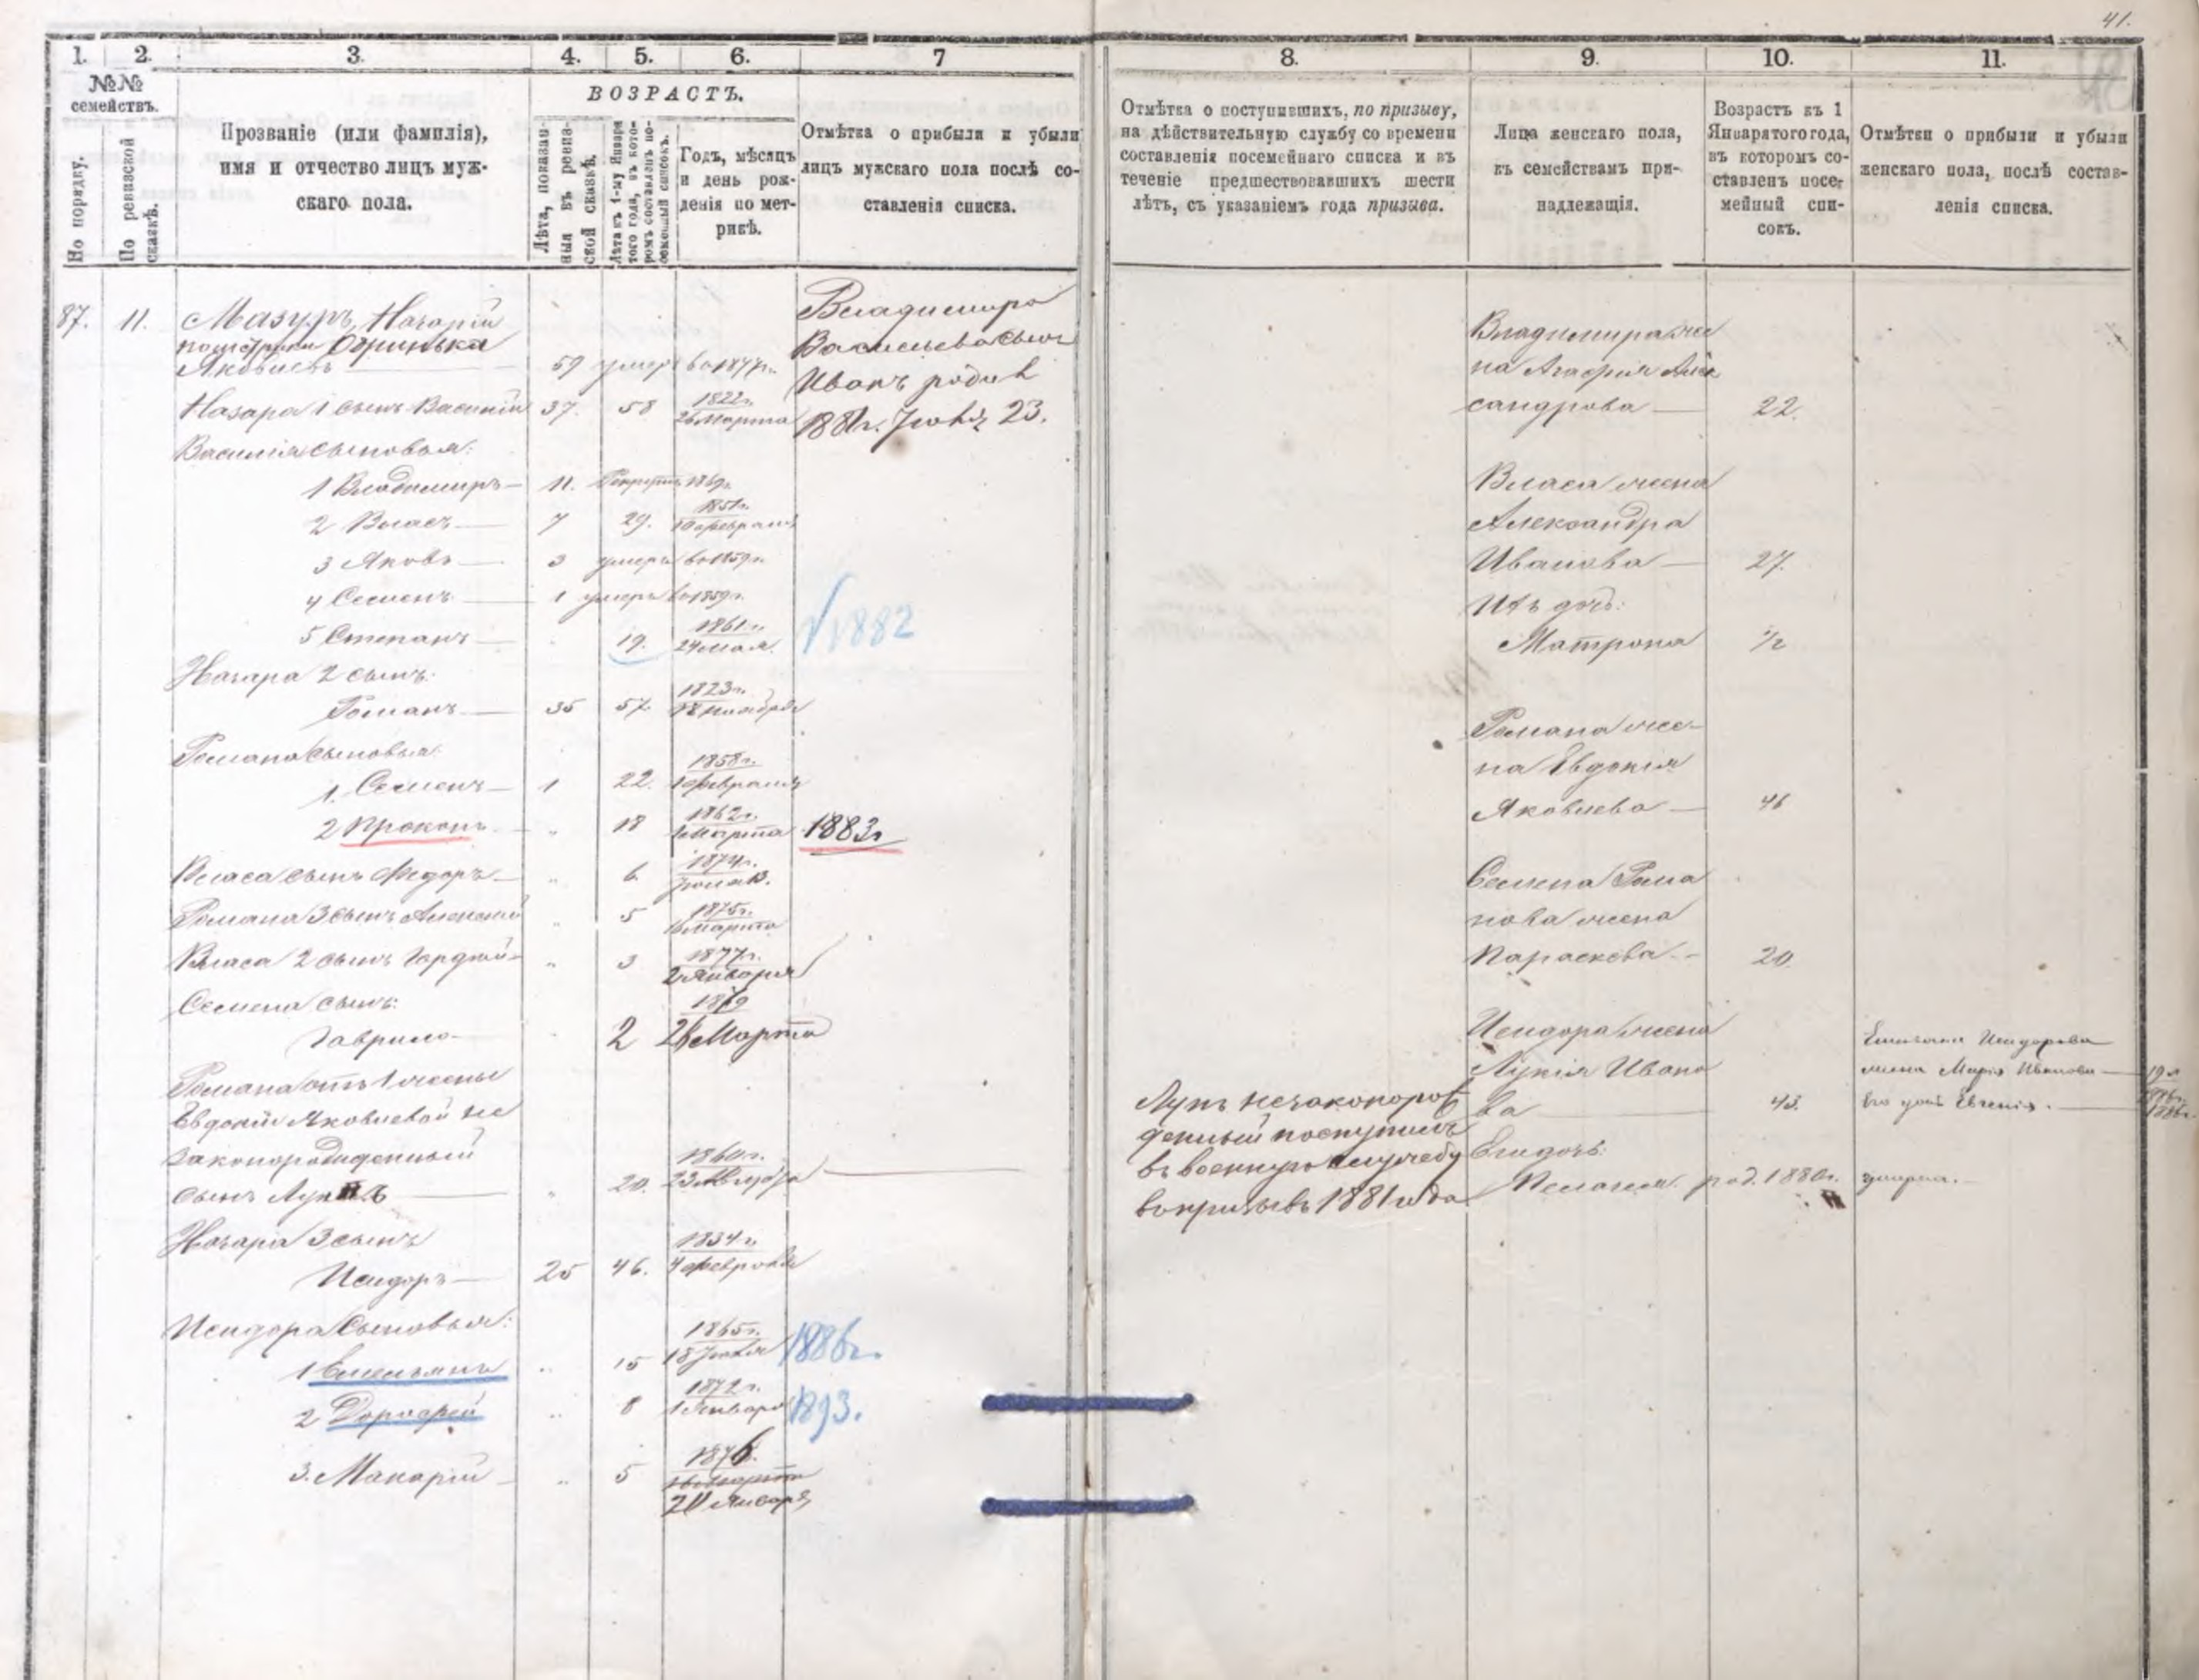 41.
1.
2.
3.
4.
5.
6.
7
8.
9.
10.
11.
№№
семействъ.
По порядку.
По ревизской
сказкѣ.
Прозваніе (или фамилія),
имя и отчество лицъ муж-
скаго пола.
ВОЗРАСТЪ.
Лѣта, показан-
ныя въ ревиз-
ской сказкѣ.
Лѣта къ 1-му Января
того года, въ кото-
ромъ составленъ по-
семейный списокъ.
Годъ, мѣсяцъ
и день рож-
денія по мет-
рикѣ.
Отмѣтка о прибыли и убыли
лицъ мужскаго пола послѣ со-
ставленія списка.
Отмѣтка о поступившихъ, по призыву,
на дѣйствительную службу со времени
составленія посемейнаго списка и въ
теченіе предшествовавшихъ шести
лѣтъ, съ указаніемъ года призыва.
Лица женскаго пола,
къ семействамъ при-
надлежащія.
Возрастъ къ 1
Января того года,
въ которомъ со-
ставленъ посе-
мейный спи-
сокъ.
Отмѣтки о прибыли и убыли
женскаго пола, послѣ состав-
ленія списка.
87. 11. Мазуръ, Назарій
Огринька
Яковлевъ 59 умеръ въ 1877 г.
Назара 1 сынъ Василій 37. 58 1822 г.
26 Марта
Василія сыновья:
1 Владимиръ 11. Рекрутъ 1869 г.
2 Власъ 7 29. 1851 г.
10 февраля
3 Яковъ 3 умеръ въ 1859 г.
4 Семенъ 1 умеръ въ 1859 г.
5 Степанъ 19. 1861 г.
24 мая. 1882
Назара 2 сынъ:
Романъ 35 57 1823 г.
18 ноября
Романа сыновья:
1. Семенъ 1 22. 1858 г.
1 февраля
2 Прокопъ „ 18 1862 г.
1 Марта 1883 г
Власа сынъ Федоръ „ 6. 1874 г.
Романа 3 сынъ Алексей „ 5 1875 г.
16 Марта
Власа 2 сынъ Гордій „ 3 1877 г.
2 Января
Семена сынъ: 1879
Гаврило 2 28 Марта
Романа отъ 1 жены
Евдокіи Яковлевой не
законорожденный
сынъ Лупъ „ 20. 1860 г.
23 Авгу
Назара 3 сынъ
Исидоръ 25 46. 1834 г.
4 февраля
Исидора Сыновья:
1 Емельянъ „ 15 1865 г.
18 Іюля 1886 г.
2 Дорофей „ 8 1872 г.
1 Января 1893.
3. Макарій „ 5 1876.
16 Марта
20 Января
Владимира
Васильева сынъ
Иванъ родив
1881 г. 23.
Лупъ незаконорож
денный поступилъ
въ военную службу
въ призывъ 1881 года
Владимира же
на Агафія Алек
сандрова 22.
Власа жена
Александра
Иванова 27.
Ихъ дочь:
Матрона 1/2
Романа же-
на Евдокія
Яковлева 46
Семена Рома
нова жена
Параскева 20.
Исидора жена
Лукія Ивано
ва 43.
Ихъ дочь:
Пелагея род. 1880 г. умерла.
Емельяна Исидорова
жена Марія Иванова 19 л
Его дочь Евгенія. 1886 г.